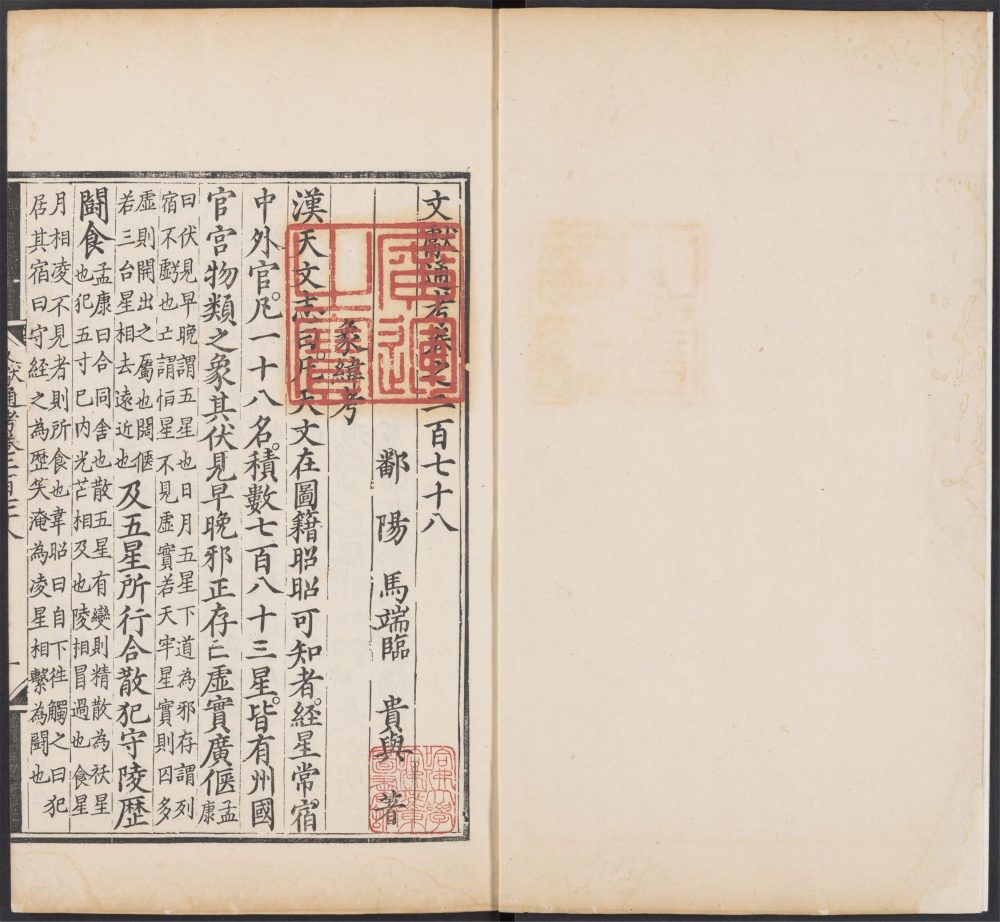 文獻通考卷之二百七十八
鄱陽 馬端臨 貴與 著
象緯考
漢天文志曰凡天文在圖籍昭昭可知者經星常宿
中外官凡一十八名積數七百八十三星皆有州國
官宮物類之象其伏見早晚邪正存亡虛實廣偃孟康
曰伏見早晚謂五星也日月五星下道為邪存謂列
宿不虧也亡謂恒星不見虛實若天牢星實則囚多
虛則開出之屬也闊偃
若三台星相去遠近也及五星所行合散犯守陵歷
鬪食孟康曰合同舍也散五星有變則精散為祅星
也犯五寸已內光芒相及也陵相冒過也食星
月相凌不見者則所食也韋昭曰自下徃觸之曰犯
居其宿曰守經之為歷突淹為凌星相繫為鬪也